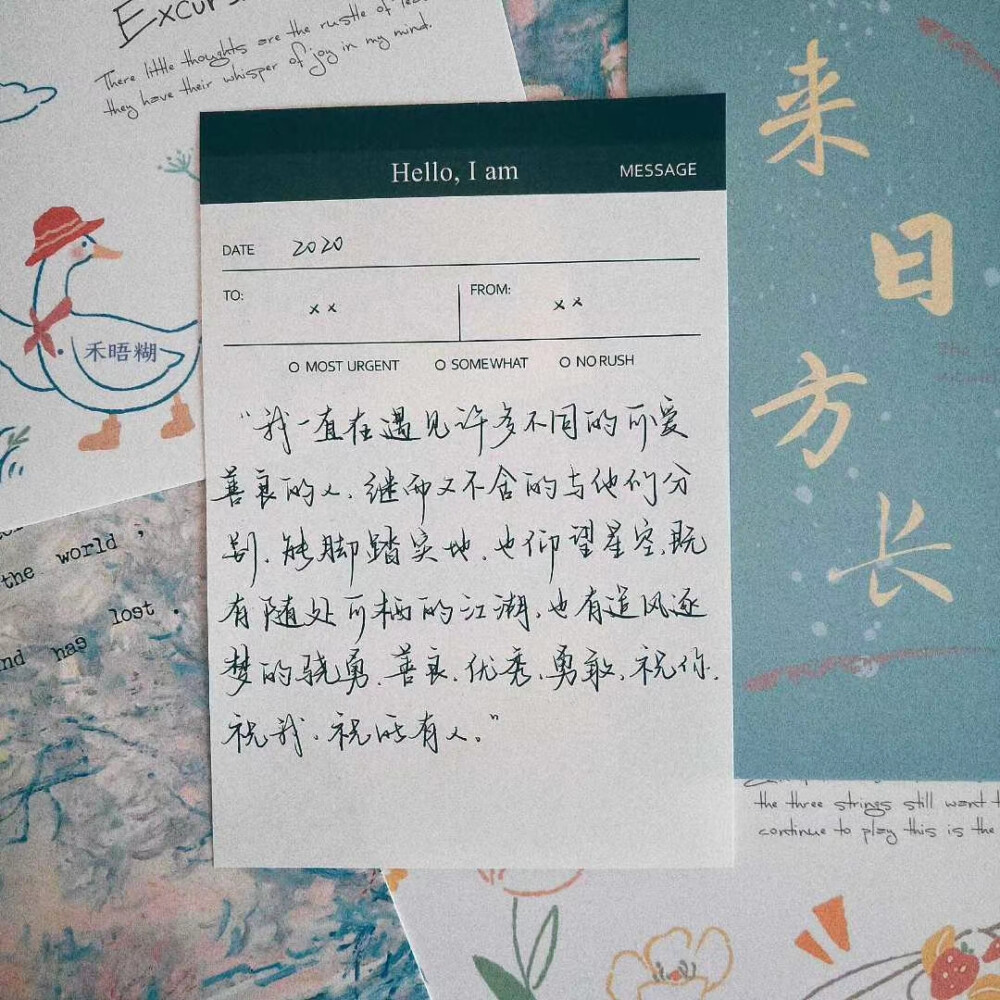 Excurs
There little thoughts are the rustle of lea
they have their whisper of joy in my mind.
禾晤糊
Hello, I am
MESSAGE
DATE 2020
TO: xx FROM: xx
MOST URGENT SOMEWHAT NO RUSH
“我一直在遇见许多不同的可爱
善良的人,继而又不舍的与他们分
别,能脚踏实地,也仰望星空,既
有随处可栖的江湖,也有追风逐
梦的骁勇,善良、优秀、勇敢,祝你,
祝我,祝所有人。”
来日方长
the world ;
nd has lost .
the three strings still want t
continue to play this is the